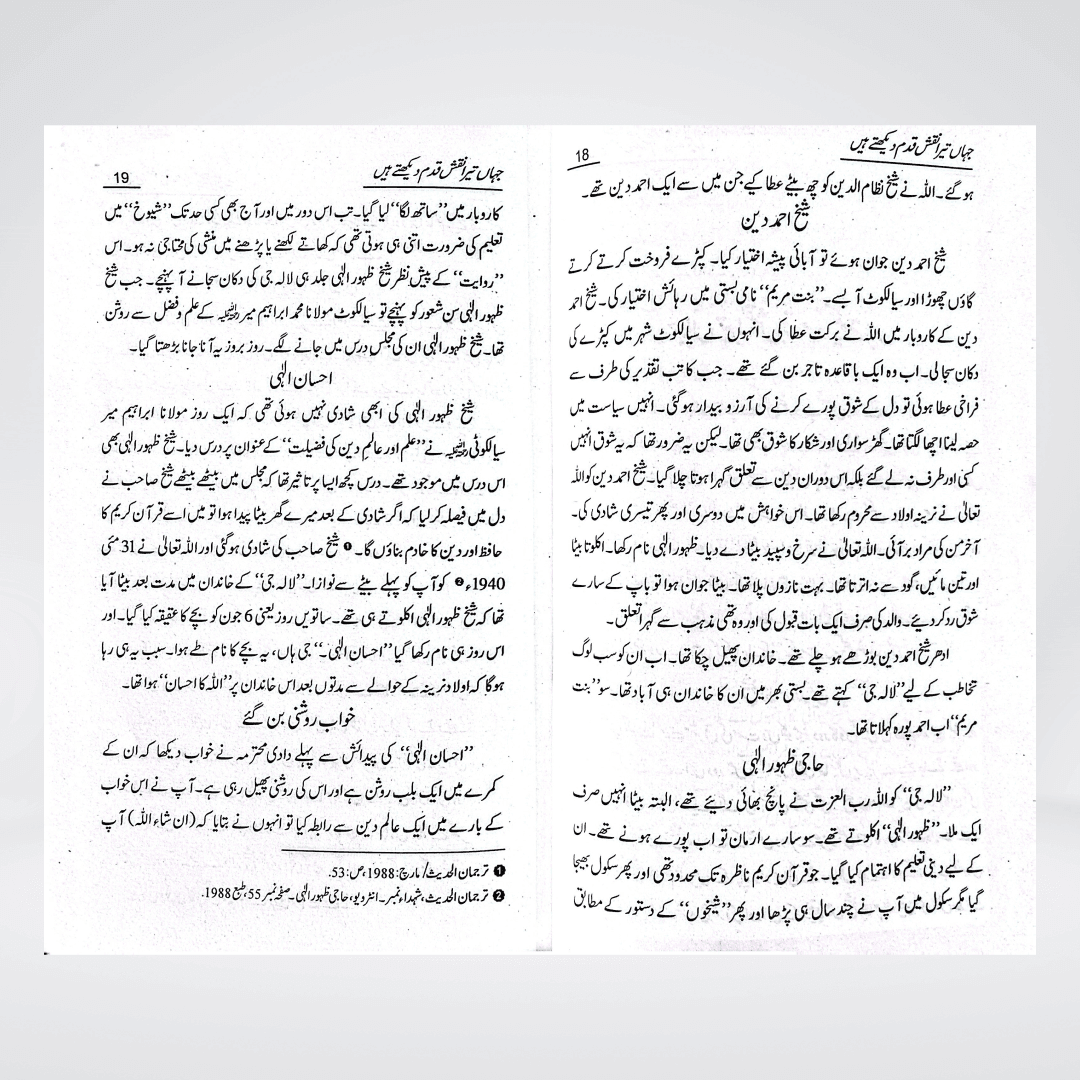 جہاں تیرا نقش قدم دیکھتے ہیں
18
ہو گئے۔ اللہ نے شیخ نظام الدین کو چھ بیٹے عطا کیے جن میں سے ایک احمد دین تھے۔
شیخ احمد دین
شیخ احمد دین جوان ہوئے تو آبائی پیشہ اختیار کیا۔ کپڑے فروخت کرتے کرتے
گاؤں چھوڑا اور سیالکوٹ آ بسے۔ ’’بنت مریم‘‘ نامی بستی میں رہائش اختیار کی۔ شیخ احمد
دین کے کاروبار میں اللہ نے برکت عطا کی۔ انہوں نے سیالکوٹ شہر میں کپڑے کی
دکان سجا لی۔ اب وہ ایک باقاعدہ تاجر بن گئے تھے۔ جب کاتب تقدیر کی طرف سے
فراخی عطا ہوئی تو دل کے شوق پورے کرنے کی آرزو بیدار ہو گئی۔ انہیں سیاست میں
حصہ لینا اچھا لگتا تھا۔ گھڑ سواری اور شکار کا شوق بھی تھا۔ لیکن یہ ضرور تھا کہ یہ شوق انہیں
کسی اور طرف نہ لے گئے بلکہ اس دوران دین سے تعلق گہرا ہوتا چلا گیا۔ شیخ احمد دین کو اللہ
تعالیٰ نے نرینہ اولاد سے محروم رکھا تھا۔ اس خواہش میں دوسری اور پھر تیسری شادی کی۔
آخر من کی مراد بر آئی۔ اللہ تعالیٰ نے سرخ و سپید بیٹا دے دیا۔ ظہور الٰہی نام رکھا۔ اکلوتا بیٹا
اور تین مائیں، گود سے نہ اترتا تھا۔ بہت نازوں پلا تھا۔ بیٹا جوان ہوا تو باپ کے سارے
شوق رد کر دیئے۔ والد کی صرف ایک بات قبول کی اور وہ تھی مذہب سے گہرا تعلق۔
ادھر شیخ احمد دین بوڑھے ہو چلے تھے۔ خاندان پھیل چکا تھا۔ اب ان کو سب لوگ
تخاطب کے لیے ’’لالہ جی‘‘ کہتے تھے۔ بستی بھر میں ان کا خاندان ہی آباد تھا۔ سو ’’بنت
مریم‘‘ اب احمد پورہ کہلاتا تھا۔
حاجی ظہور الٰہی
’’لالہ جی‘‘ کو اللہ رب العزت نے پانچ بھائی دیئے تھے، البتہ بیٹا انہیں صرف
ایک ملا۔ ’’ظہور الٰہی‘‘ اکلوتے تھے۔ سو سارے ارمان تو اب پورے ہونے تھے۔ ان
کے لیے دینی تعلیم کا اہتمام کیا گیا۔ جو قرآن کریم ناظرہ تک محدود تھی اور پھر سکول بھیجا
گیا مگر سکول میں آپ نے چند سال ہی پڑھا اور پھر ’’شیخوں‘‘ کے دستور کے مطابق
جہاں تیرا نقش قدم دیکھتے ہیں
19
کاروبار میں ’’ساتھ لگا‘‘ لیا گیا۔ تب اس دور میں اور آج بھی کسی حد تک ’’شیوخ‘‘ میں
تعلیم کی ضرورت اتنی ہی ہوتی تھی کہ کھاتے لکھنے یا پڑھنے میں منشی کی محتاجی نہ ہو۔ اس
’’روایت‘‘ کے پیش نظر شیخ ظہور الٰہی جلد ہی لالہ جی کی دکان سجانے آ پہنچے۔ جب شیخ
ظہور الٰہی سن شعور کو پہنچے تو سیالکوٹ مولانا محمد ابراہیم میر رحمہ اللہ کے علم و فضل سے روشن
تھا۔ شیخ ظہور الٰہی ان کی مجلس درس میں جانے لگے۔ روز بروز یہ آنا جانا بڑھتا گیا۔
احسان الٰہی
شیخ ظہور الٰہی کی ابھی شادی نہیں ہوئی تھی کہ ایک روز مولانا ابراہیم میر
سیالکوٹی رحمہ اللہ نے ’’علم اور عالمِ دین کی فضیلت‘‘ کے عنوان پر درس دیا۔ شیخ ظہور الٰہی بھی
اس درس میں موجود تھے۔ درس کچھ ایسا پر تاثیر تھا کہ مجلس میں بیٹھے بیٹھے شیخ صاحب نے
دل میں فیصلہ کر لیا کہ اگر شادی کے بعد میرے گھر بیٹا پیدا ہوا تو میں اسے قرآن کریم کا
حافظ اور دین کا خادم بناؤں گا۔ ❶ شیخ صاحب کی شادی ہو گئی اور اللہ تعالیٰ نے 31 مئی
1940ء ❷ کو آپ کو پہلے بیٹے سے نوازا۔ ’’لالہ جی‘‘ کے خاندان میں مدت بعد بیٹا آیا
تھا کہ شیخ ظہور الٰہی اکلوتے ہی تھے۔ ساتویں روز یعنی 6 جون کو بچے کا عقیقہ کیا گیا۔ اور
اس روز ہی نام رکھا گیا ’’احسان الٰہی۔‘‘ جی ہاں، یہ بچے کا نام طے ہوا۔ سبب یہ ہی رہا
ہو گا کہ اولاد نرینہ کے حوالے سے مدتوں بعد اس خاندان پر ’’اللہ کا احسان‘‘ ہوا تھا۔
خواب روشنی بن گئے
’’احسان الٰہی‘‘ کی پیدائش سے پہلے دادی محترمہ نے خواب دیکھا کہ ان کے
کمرے میں ایک بلب روشن ہے اور اس کی روشنی پھیل رہی ہے۔ آپ نے اس خواب
کے بارے میں ایک عالم دین سے رابطہ کیا تو انہوں نے بتایا کہ (ان شاء اللہ) آپ
❶ ترجمان الحدیث / مارچ: 1988، ص: 53.
❷ ترجمان الحدیث، شہداء نمبر۔ انٹرویو، حاجی ظہور الٰہی۔ صفحہ نمبر 55، طبع 1988.